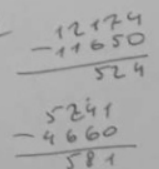 12174
-11650
524
5241
-4660
581